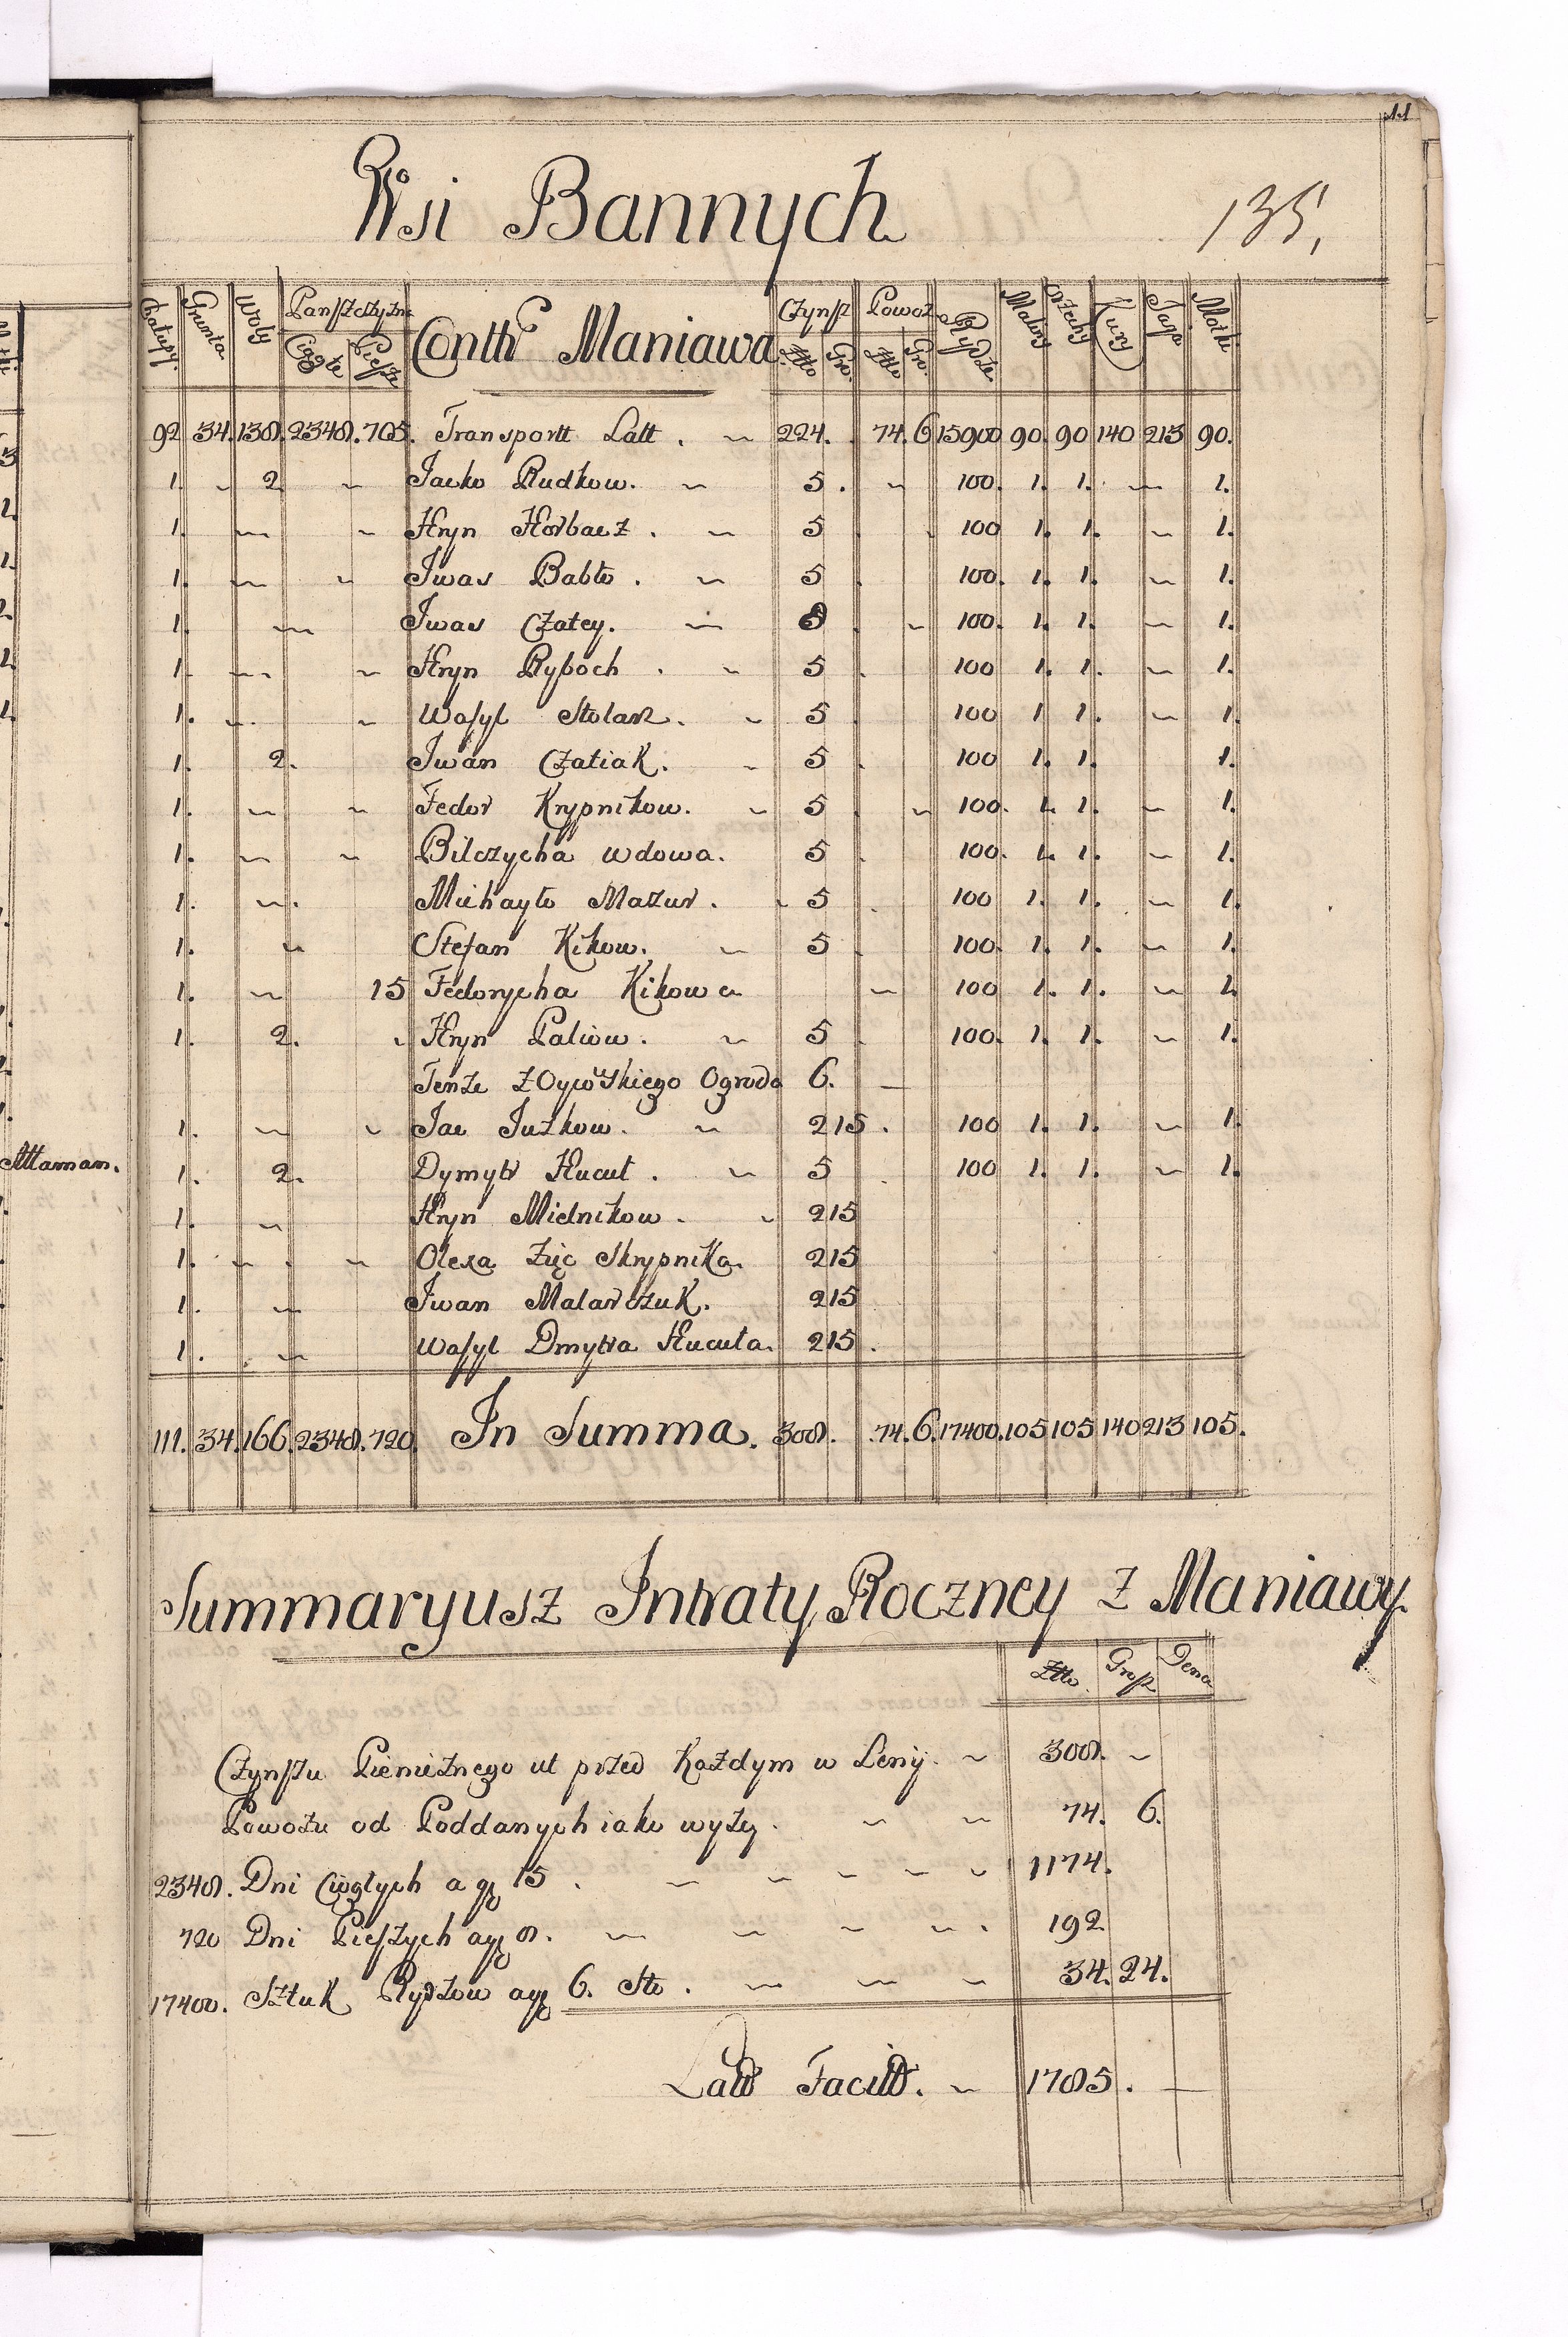 11
Wsi Bannych
135,
Chałupy Grunta Woły Panszczyzn Contr Maniawa Czynsz Powoz Rydze Maliny Orzechy Kury Jaga Motki
Ciągłe Piesze Złto Gro. Złto Gro.
92 34. 138. 2348. 705. Transportt Latt. 224. 74. 6 15900 90. 90 140 213 90.
1. ~ 2 ~ Jacko Rudkow. ~ 5. ~ 100. 1. 1. ~ 1.
1. ~ ~ Hryn Horbacz. ~ 5 100 1. 1. ~ 1.
1. ~ ~ Iwas Babło. ~ 5 100. 1. 1. ~ 1.
1. ~ Iwas Czatey. ~ 5 ~ 100. 1. 1. ~ 1.
1. ~ ~ Hryn Ryboch. ~ 5 100 1. 1. ~ 1.
1. ~ ~ Wasyl Stolarz. ~ 5 100 1 1. ~ 1.
1. 2. Iwan Czatiak. ~ 5 100 1. 1. 1.
1. ~ ~ Fedor Krypnikow. ~ 5 ~ 100. 1. 1. ~ 1.
1. ~ ~ Bilczycha wdowa. 5 100. 1. 1. ~ 1.
1. ~ Michayło Mazur. ~ 5 100 1. 1. ~ 1.
1. ~ Stefan Kikow. ~ 5 100. 1. 1. ~ 1.
1. ~ 15 Fedorycha Kikowa ~ 100 1. 1. ~ 1.
1. 2. ~ Hryn Paliow. ~ 5 100. 1. 1. ~ 1.
Tenże z Oycowskiego Ogroda 6. —
1. ~ ~ Jac Juzkow. ~ 2 15. 100 1. 1. ~ 1.
Attaman.
1. 2. Dymytr Hucuł. ~ 5 100 1. 1. ~ 1.
1. ~ Hryn Mielnikow. ~ 2 15
1. ~ ~ Olexa Zięc Skrypnika. 2 15
1. ~ Iwan Malarczuk. 2 15
1. ~ Wasyl Dmytra Hucuła. 2 15.
111. 34. 166. 2348. 720. In Summa. 308. 74. 6. 17400. 105 105 140 213 105.
Summaryusz Intraty Roczney z Maniawy
Złto Grosz Dena
Czynszu Pieniężnego ut przed Każdym w Lenij. ~ 308. ~
Powozu od Poddanych iako wyzey. ~ ~ 74. 6.
2348. Dni Ciągłych a gr 15. ~ ~ ~ ~ ~ 1174.
720 Dni Pieszych a gr 8. ~ ~ ~ ~ 192
17400. Sztuk Rydzow a gr 6. Sto. ~ ~ ~ 34. 24.
Latt Facitt. ~ 1785. —